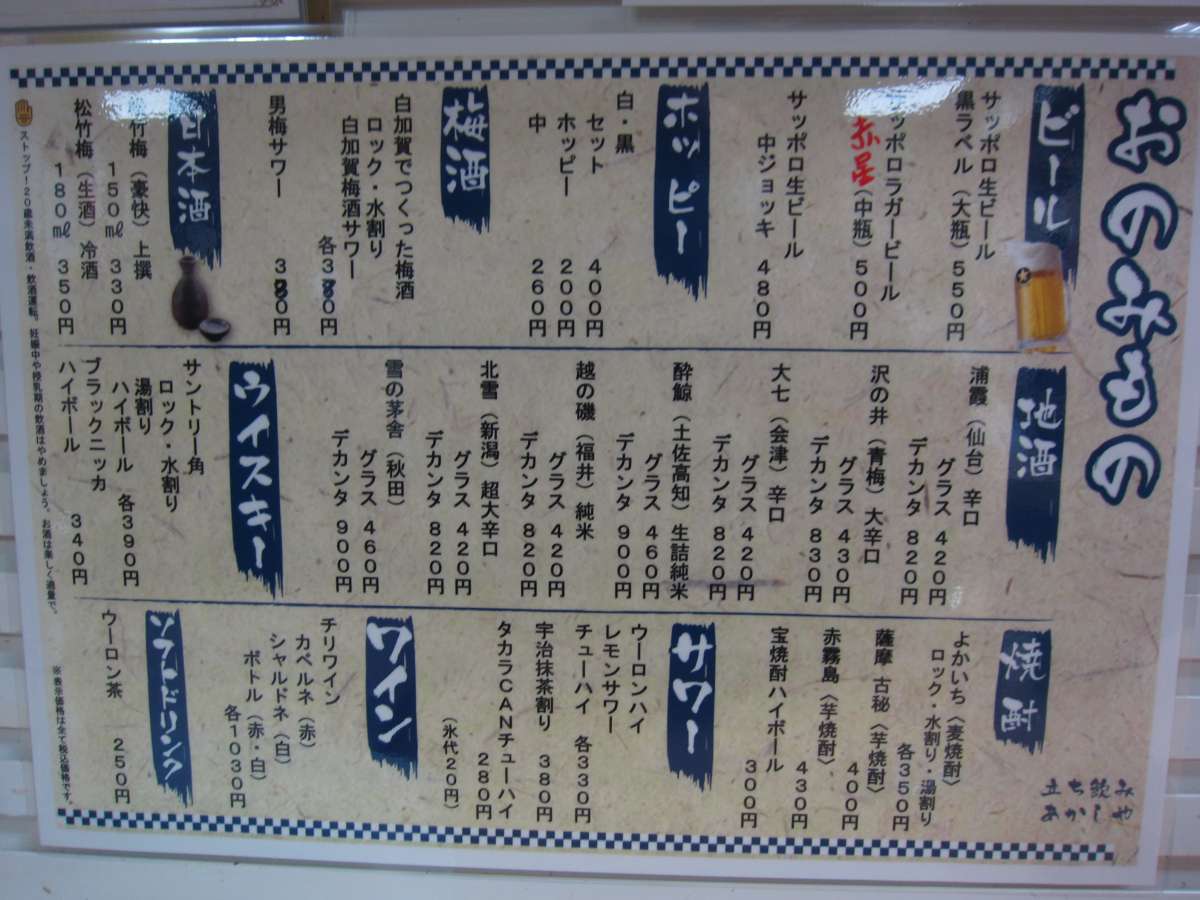 おのみもの
ビール
サッポロ生ビール
黒ラベル（大瓶）５５０円
サッポロラガービール
赤星（中瓶）５００円
サッポロ生ビール
中ジョッキ ４８０円
ホッピー
白・黒
セット ４００円
ホッピー ２００円
中 ２６０円
梅酒
白加賀でつくった梅酒
ロック・水割り
白加賀梅酒サワー
各３８０円
男梅サワー ３８０円
日本酒
松竹梅（豪快）上撰
１５０㎖ ３３０円
松竹梅（生酒）冷酒
１８０㎖ ３５０円
地酒
浦霞（仙台）辛口
グラス ４２０円
デカンタ ８２０円
沢の井（青梅）大辛口
グラス ４３０円
デカンタ ８３０円
大七（会津）辛口
グラス ４２０円
デカンタ ８２０円
酔鯨（土佐高知）生詰純米
グラス ４６０円
デカンタ ９００円
越の磯（福井）純米
グラス ４２０円
デカンタ ８２０円
北雪（新潟）超大辛口
グラス ４２０円
デカンタ ８２０円
雪の茅舎（秋田）
グラス ４６０円
デカンタ ９００円
ウイスキー
サントリー角
ロック・水割り
湯割り
ハイボール 各３９０円
ブラックニッカ
ハイボール ３４０円
焼酎
よかいち〈麦焼酎〉
ロック・水割り・湯割り
各３５０円
薩摩 古秘〈芋焼酎〉
４００円
赤霧島〈芋焼酎〉
４３０円
宝焼酎ハイボール
３００円
サワー
ウーロンハイ
レモンサワー
チューハイ 各３３０円
宇治抹茶割り ３８０円
タカラＣＡＮチューハイ
２８０円
（氷代２０円）
ワイン
チリワイン
カベルネ（赤）
シャルドネ（白）
ボトル（赤・白）
各１０３０円
ソフトドリンク
ウーロン茶 ２５０円
立ち飲み
あかしや
ストップ！２０歳未満飲酒・飲酒運転。妊娠中や授乳期の飲酒はやめましょう。お酒は楽しく適量で。
※表示価格は全て税込価格です。